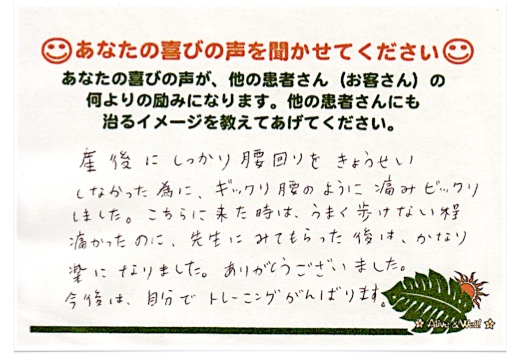 あなたの喜びの声を聞かせてください
あなたの喜びの声が、他の患者さん（お客さん）の
何よりの励みになります。他の患者さんにも
治るイメージを教えてあげてください。
産後にしっかり腰回りをきょうせい
しなかった為に、ギックリ腰のように痛みビックリ
しました。こちらに来た時は、うまく歩けない程
痛かったのに、先生にみてもらった後は、かなり
楽になりました。ありがとうございました。
今後は、自分でトレーニングがんばります。
Alive & Well!